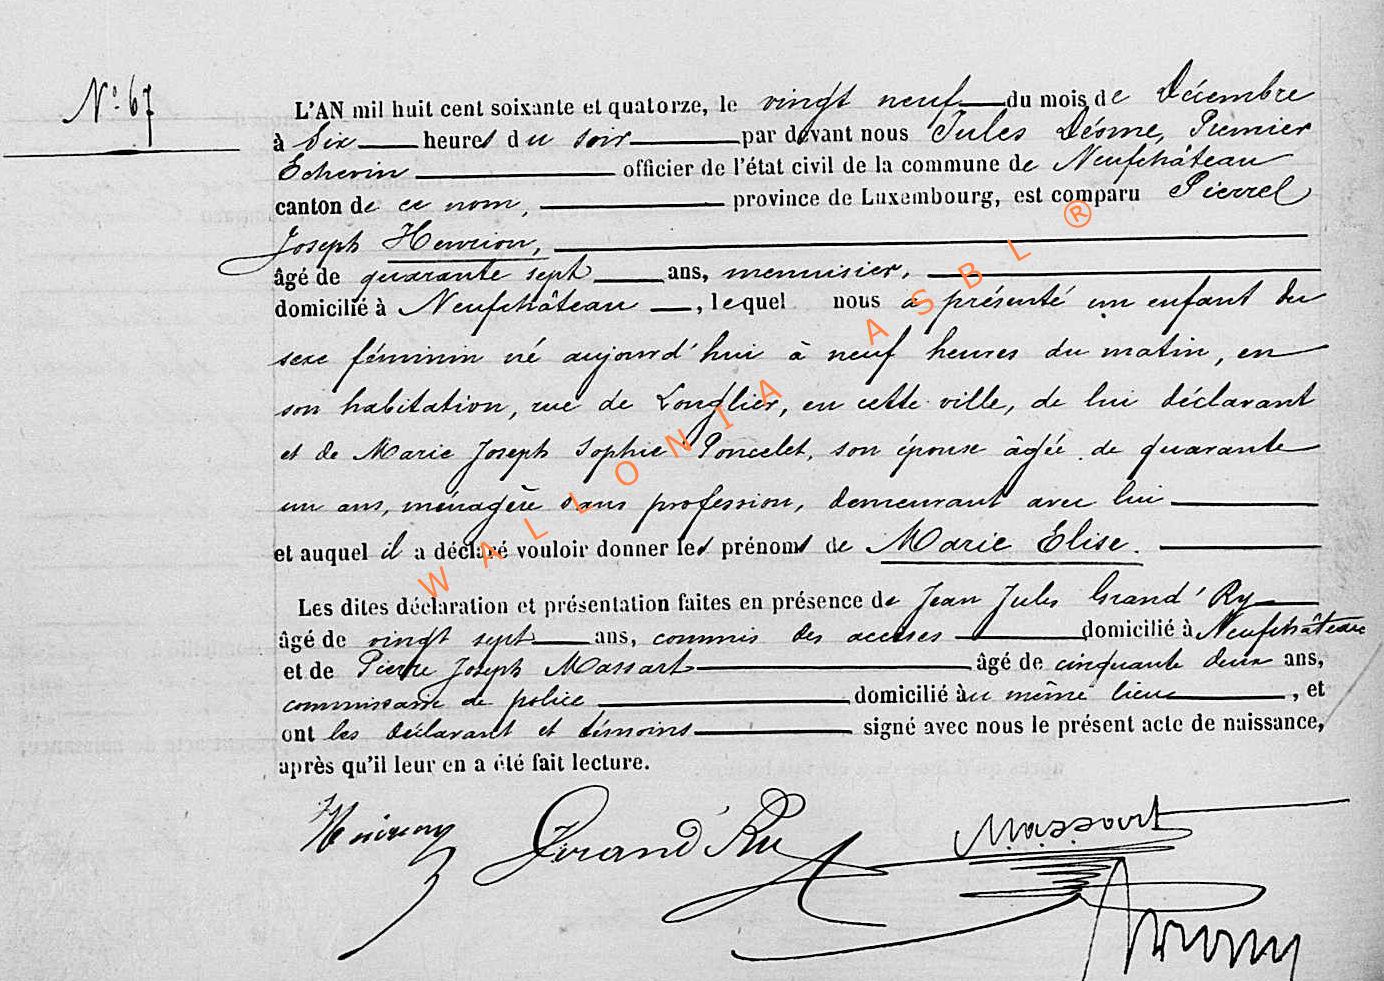 N° 67
L'AN mil huit cent soixante et quatorze, le vingt neuf du mois de Décembre
à Six heures du soir par devant nous Jules Déome, Premier
Echevin officier de l'état civil de la commune de Neufchâteau
canton de ce nom, province de Luxembourg, est comparu Pierre
Joseph Henrion,
âgé de quarante sept ans, menuisier,
domicilié à Neufchâteau, lequel nous a présenté un enfant du
sexe féminin né aujourd'hui à neuf heures du matin, en
son habitation, rue de Longlier, en cette ville, de lui déclarant
et de Marie Joseph Sophie Poncelet, son épouse âgée de quarante
un ans, ménagère sans profession, demeurant avec lui
et auquel il a déclaré vouloir donner les prénoms de Marie Elise.
Les dites déclaration et présentation faites en présence de Jean Jules Grand'Ry
âgé de vingt sept ans, commis des accises domicilié à Neufchâteau
et de Pierre Joseph Massart âgé de cinquante deux ans,
commissaire de police domicilié au même lieu, et
ont les déclarant et témoins signé avec nous le présent acte de naissance,
après qu'il leur en a été fait lecture.
Henrion Grand'Ry Massart
WALLONIA ASBL ®